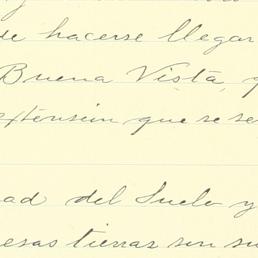 de hacerse llegar
Buena Vista, q
extensión que se se
ad del Suelo y
esas tierras son su